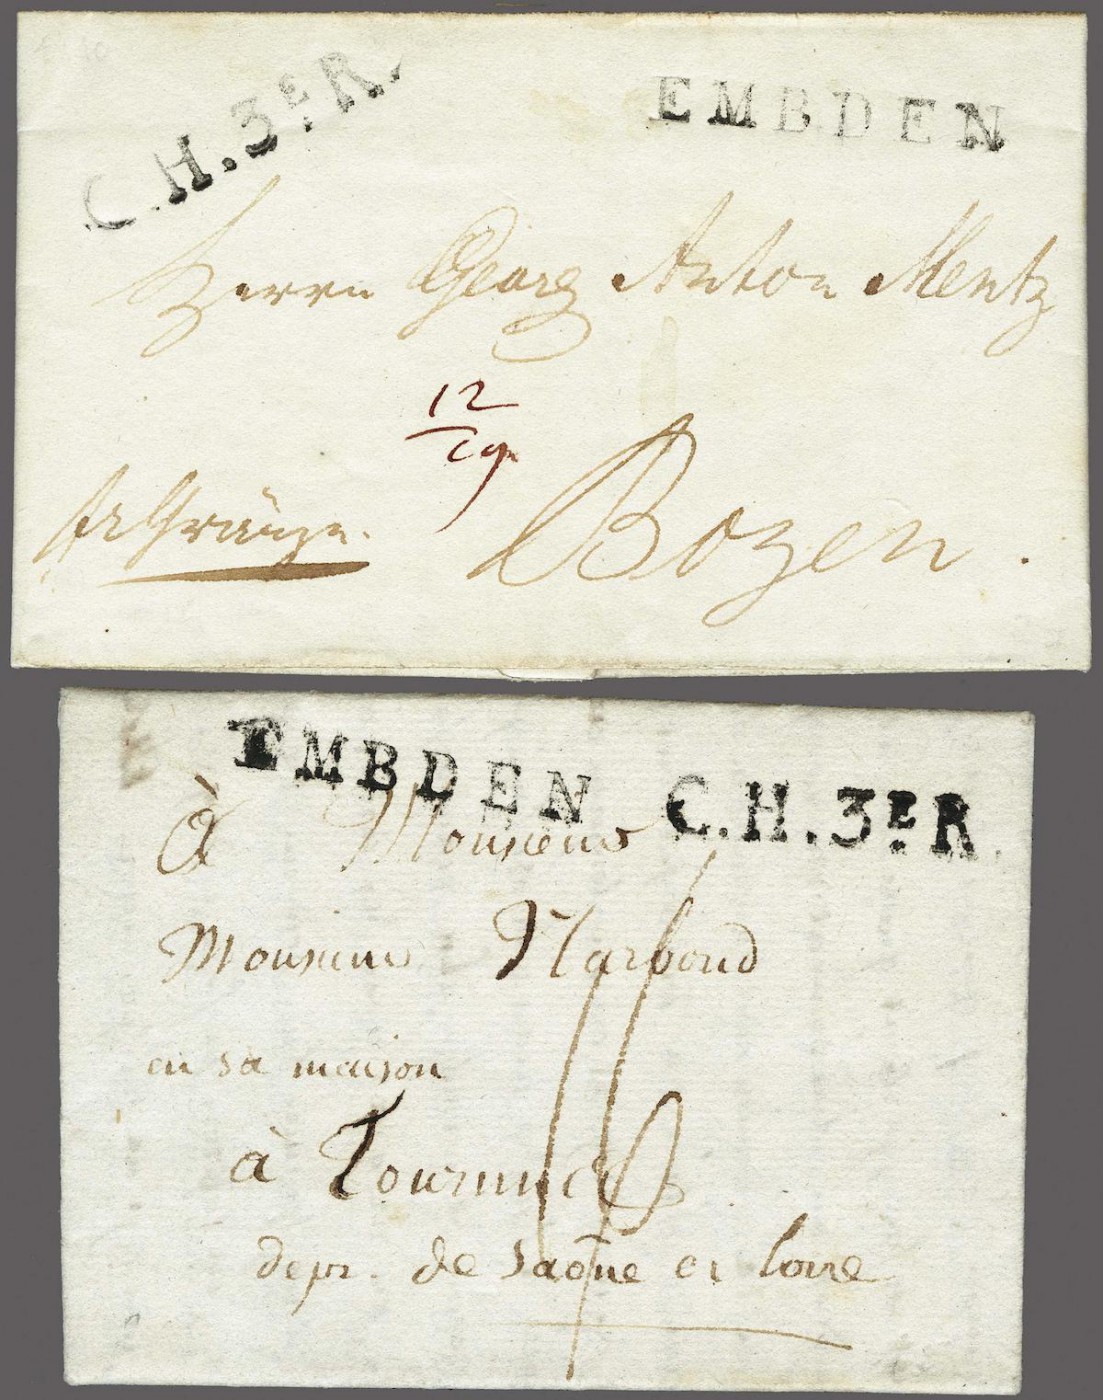 C.H.3ᴱR.
EMBDEN
Herrn Georg Anton Mentz
12
Bozen.
frGränze.
EMBDEN C.H.3ᴱR.
à Monsieur
Monsieur Narboud
en sa maison
à Tournus
depr. de saone et loire